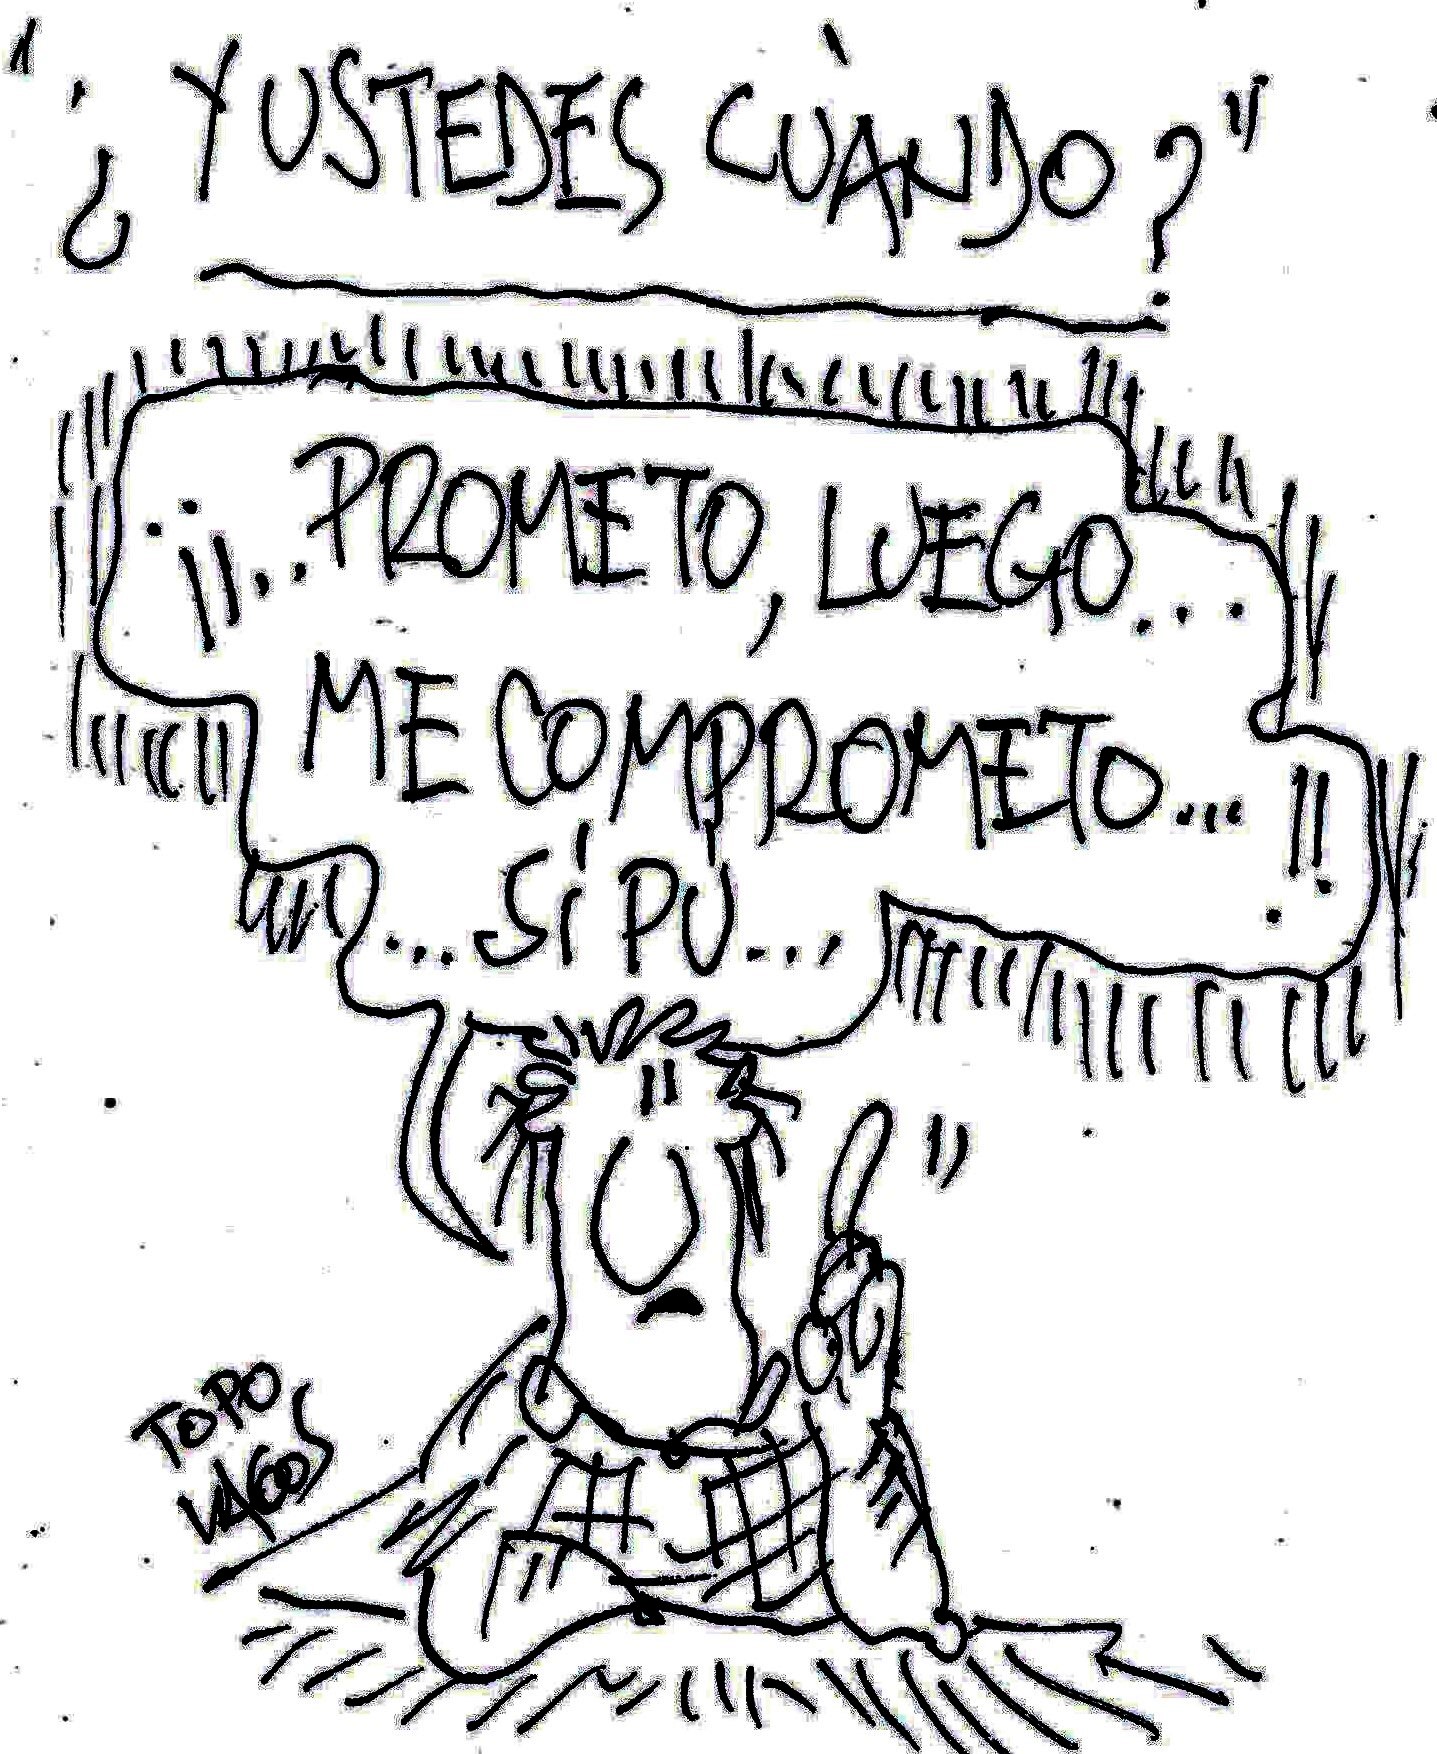 "¿Y USTEDES CUÁNDO?"
¡¡..PROMETO, LUEGO...
ME COMPROMETO...!!
...SÍ PU...
TOPO
VAGOS